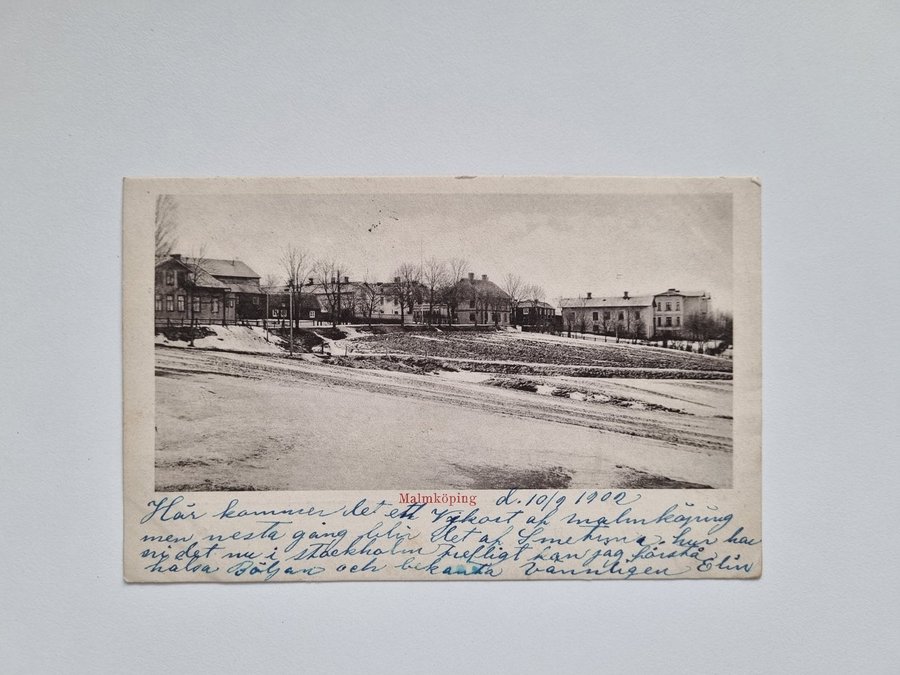 Malmköping d. 10/9 1902
Här kommer det ett Vykort af malmköping
men nesta gång blir det af hur har
ni det nu i stockholm trefligt kan jag förstå
hälsa och bekanta Vännligen Elin